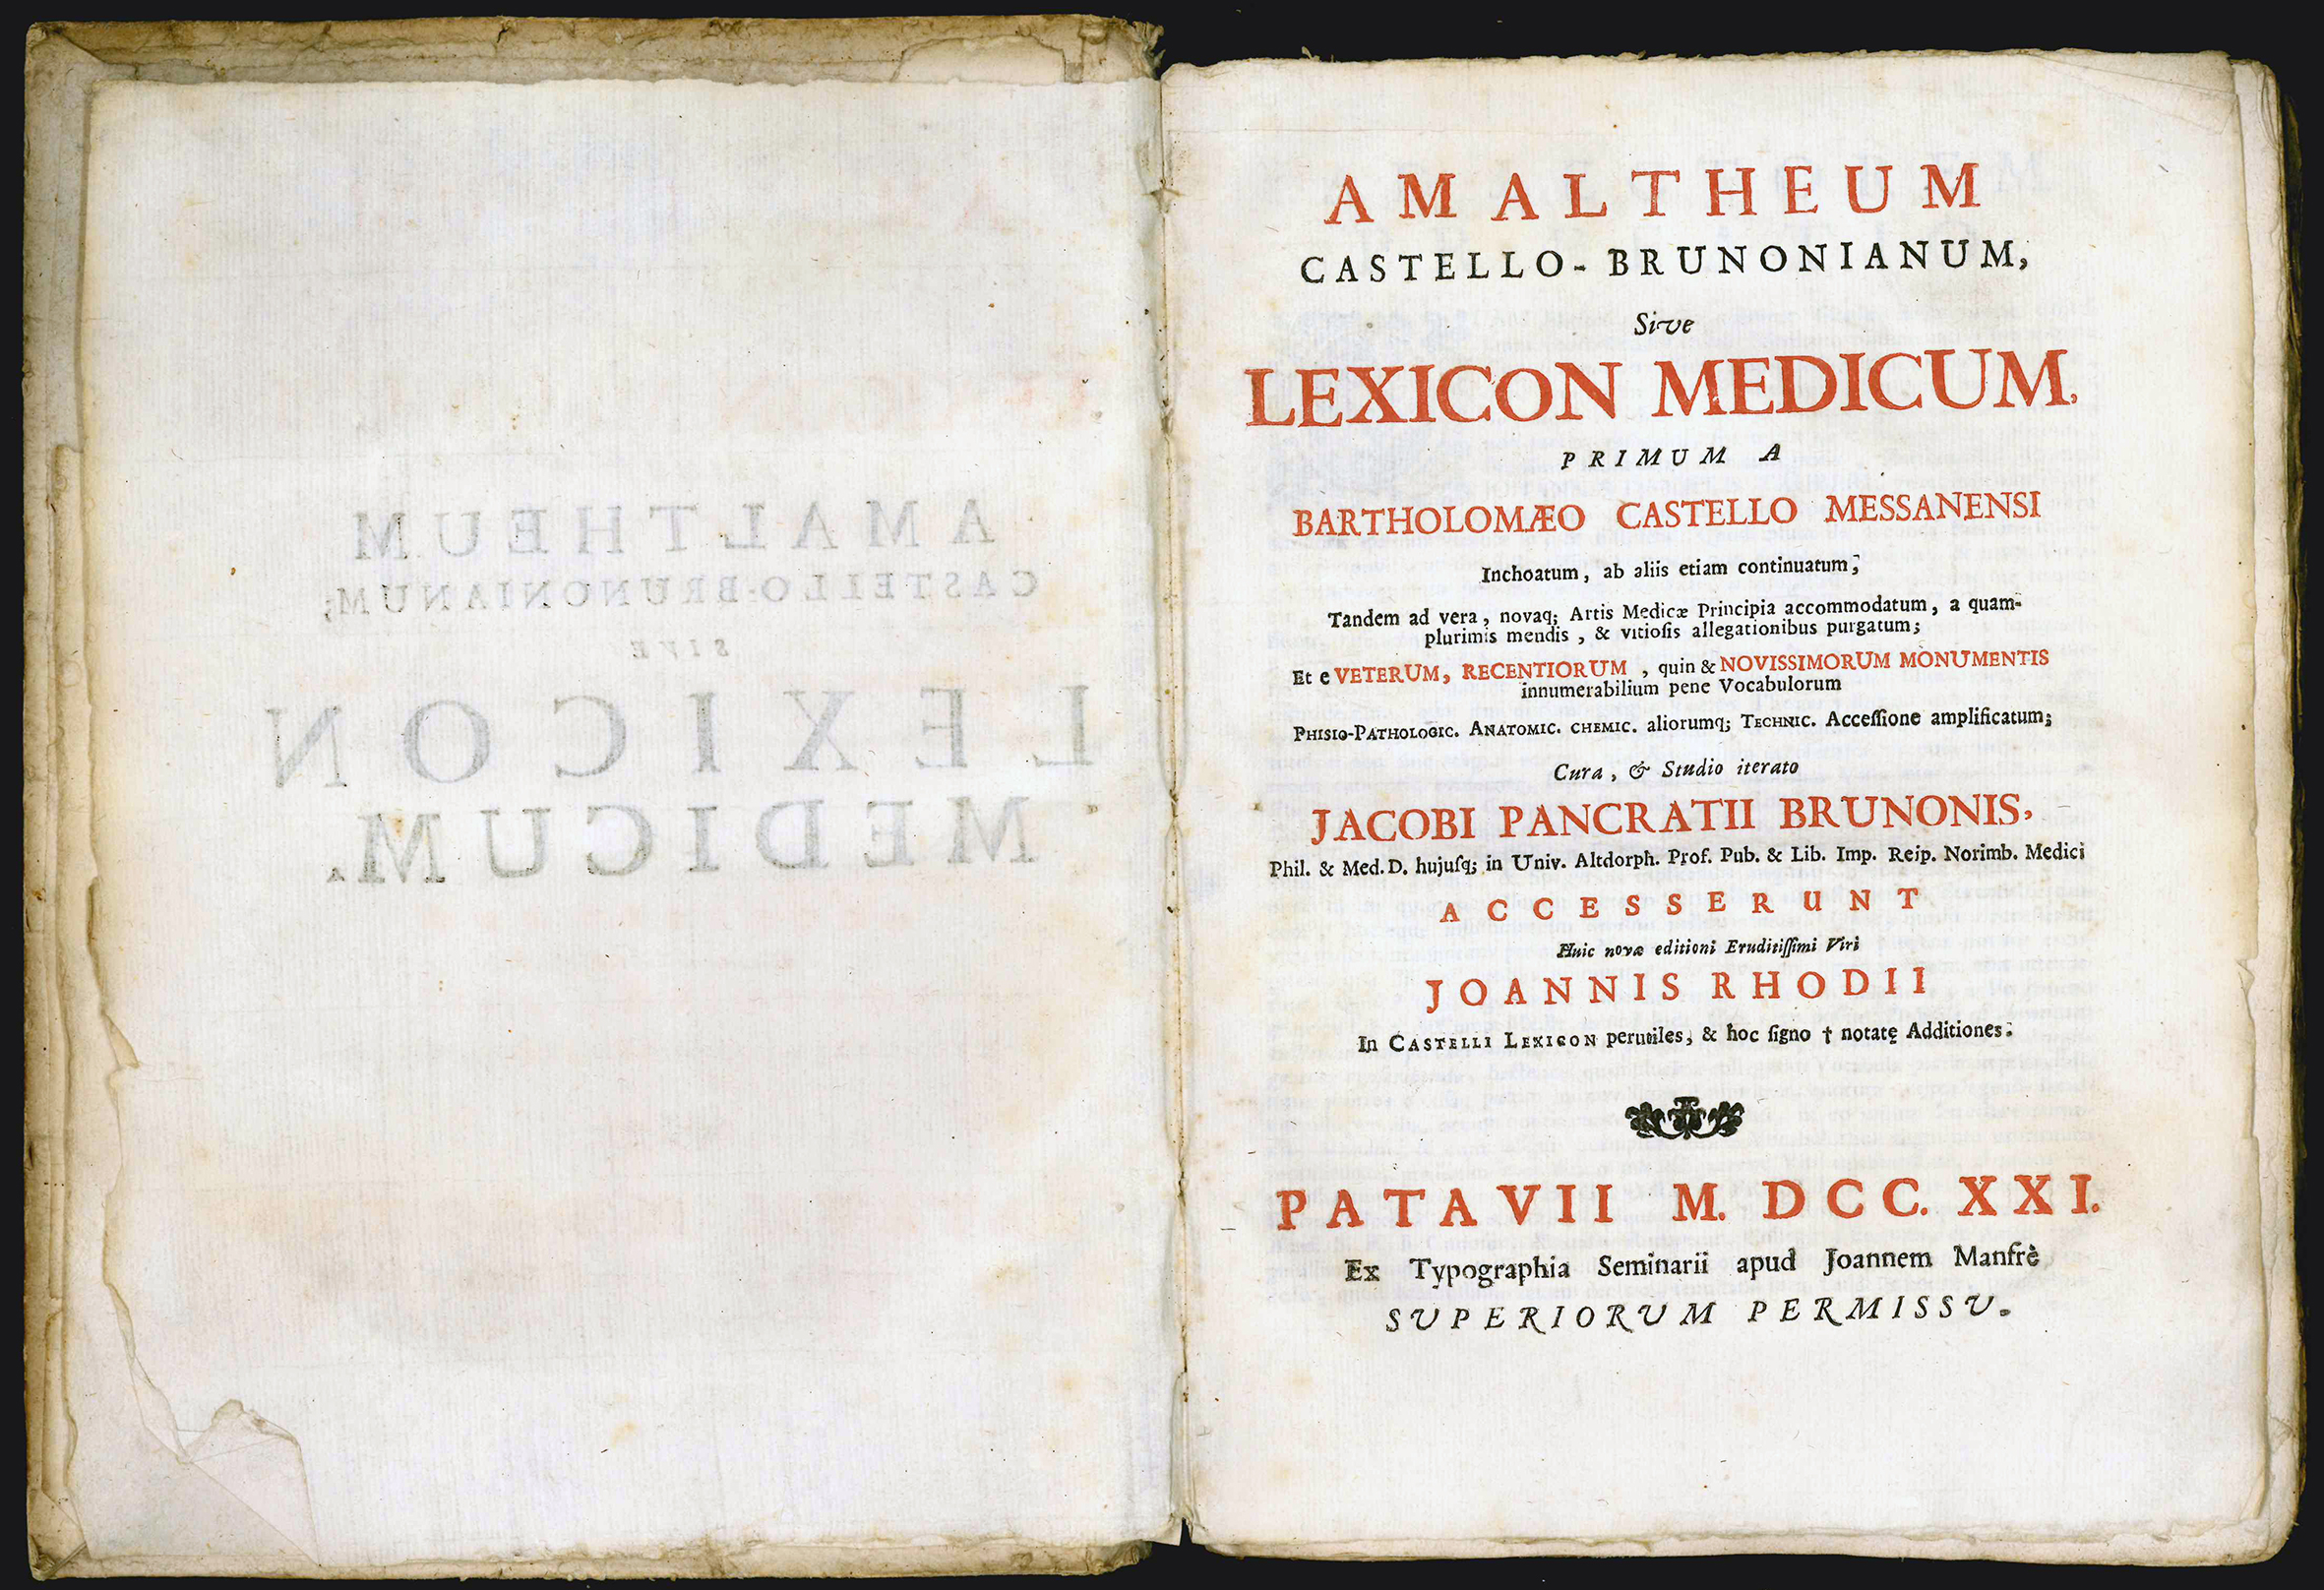 AMALTHEUM
CASTELLO-BRUNONIANUM;
SIVE
LEXICON
MEDICUM.
AMALTHEUM
CASTELLO-BRUNONIANUM,
Sive
LEXICON MEDICUM,
PRIMUM A
BARTHOLOMÆO CASTELLO MESSANENSI
Inchoatum, ab aliis etiam continuatum;
Tandem ad vera, novaq; Artis Medicæ Principia accommodatum, a quam-
plurimis mendis, & vitiosis allegationibus purgatum;
Et e VETERUM, RECENTIORUM, quin & NOVISSIMORUM MONUMENTIS
innumerabilium pene Vocabulorum
PHISIO-PATHOLOGIC. ANATOMIC. CHEMIC. aliorumq; TECHNIC. Accessione amplificatum;
Cura, & Studio iterato
JACOBI PANCRATII BRUNONIS,
Phil. & Med. D. hujusq; in Univ. Altdorph. Prof. Pub. & Lib. Imp. Reip. Norimb. Medici
ACCESSERUNT
Huic novæ editioni Eruditissimi Viri
JOANNIS RHODII
In CASTELLI LEXICON perutiles, & hoc signo † notatę Additiones.
PATAVII M. DCC. XXI.
Ex Typographia Seminarii apud Joannem Manfrè
SUPERIORUM PERMISSU.